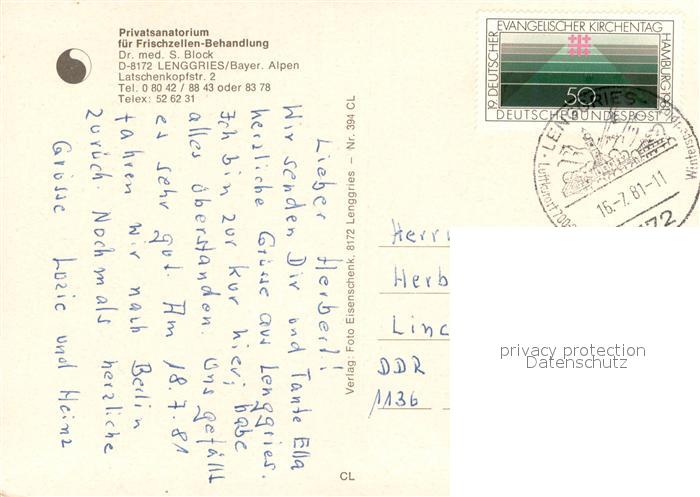 Privatsanatorium
für Frischzellen-Behandlung
Dr. med. S. Block
D-8172 LENGGRIES/Bayer. Alpen
Latschenkopfstr. 2
Tel. 0 80 42 / 88 43 oder 83 78
Telex: 52 62 31
19. DEUTSCHER EVANGELISCHER KIRCHENTAG HAMBURG 1981
50
DEUTSCHE BUNDESPOST
LENGGRIES
16.-7.81-11
Lieber Herbert!
Wir senden Dir und Tante Ella
herzliche Grüsse aus Lenggries.
Ich bin zur Kur hier, habe
alles überstanden. Uns gefällt
es sehr gut. Am 18.7.81
fahren wir nach Berlin
zurück. Nochmals herzliche
Grüsse Luzie und Heinz
Verlag: Foto Eisenschenk, 8172 Lenggries – Nr. 394 CL
Herrn
Herb
Linc
DDR
1136
privacy protection
Datenschutz
CL